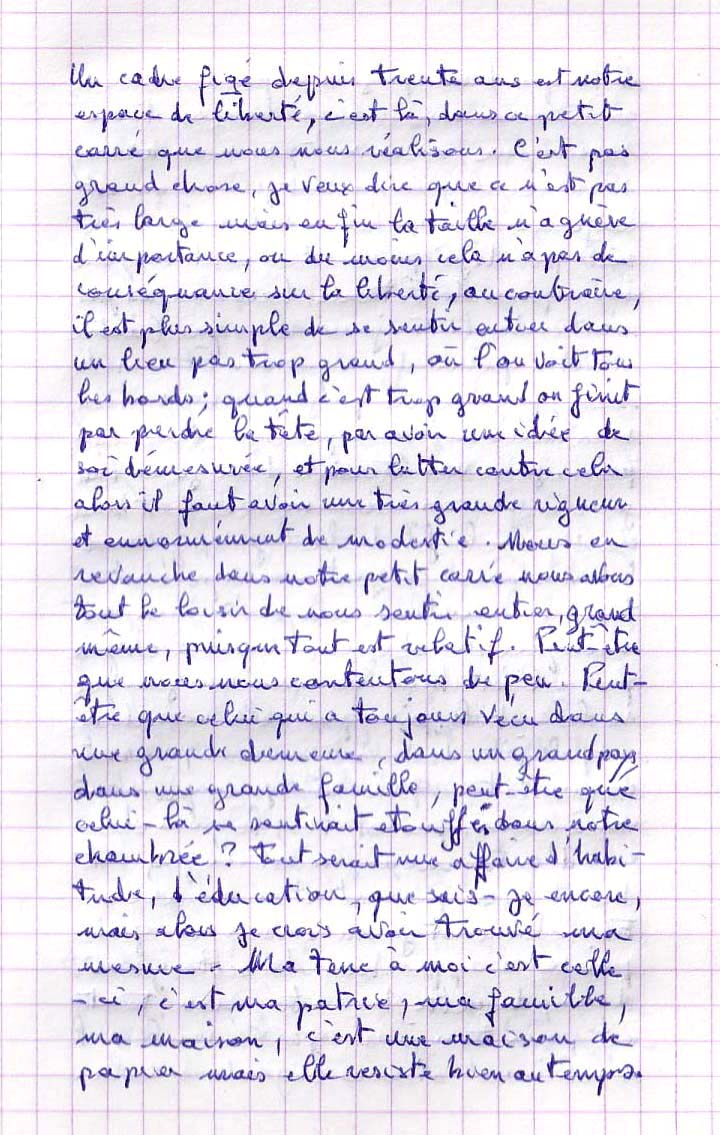 Un cadre figé depuis trente ans est notre
espace de liberté, c'est là, dans ce petit
carré que nous nous réalisons. C'est pas
grand chose, je veux dire que ce n'est pas
très large mais enfin la taille n'a guère
d'importance, ou du moins cela n'a pas de
conséquance sur la liberté, au contraire,
il est plus simple de se sentir entier dans
un lieu pas trop grand, où l'on voit tous
les bords ; quand c'est trop grand on finit
par perdre la tête, par avoir une idée de
soi démesurée, et pour lutter contre cela
alors il faut avoir une très grande rigueur
et ennormément de modestie. Nous en
revanche dans notre petit carré nous avons
tout le loisir de nous sentir entier, grand
même, puisque tout est relatif. Peut-être
que nous nous contentons de peu. Peut-
être que celui qui a toujours vécu dans
une grande demeure, dans un grand pays
dans une grande famille, peut-être que
celui-là se sentirait étouffé dans notre
chambrée ? Tout serait une affaire d'habi-
tude, d'éducation, que sais-je encore,
mais alors je crois avoir trouvé ma
mesure - Ma terre à moi c'est celle
-ci, c'est ma patrie, ma famille,
ma maison, c'est une maison de
papier mais elle résiste bien au temps.